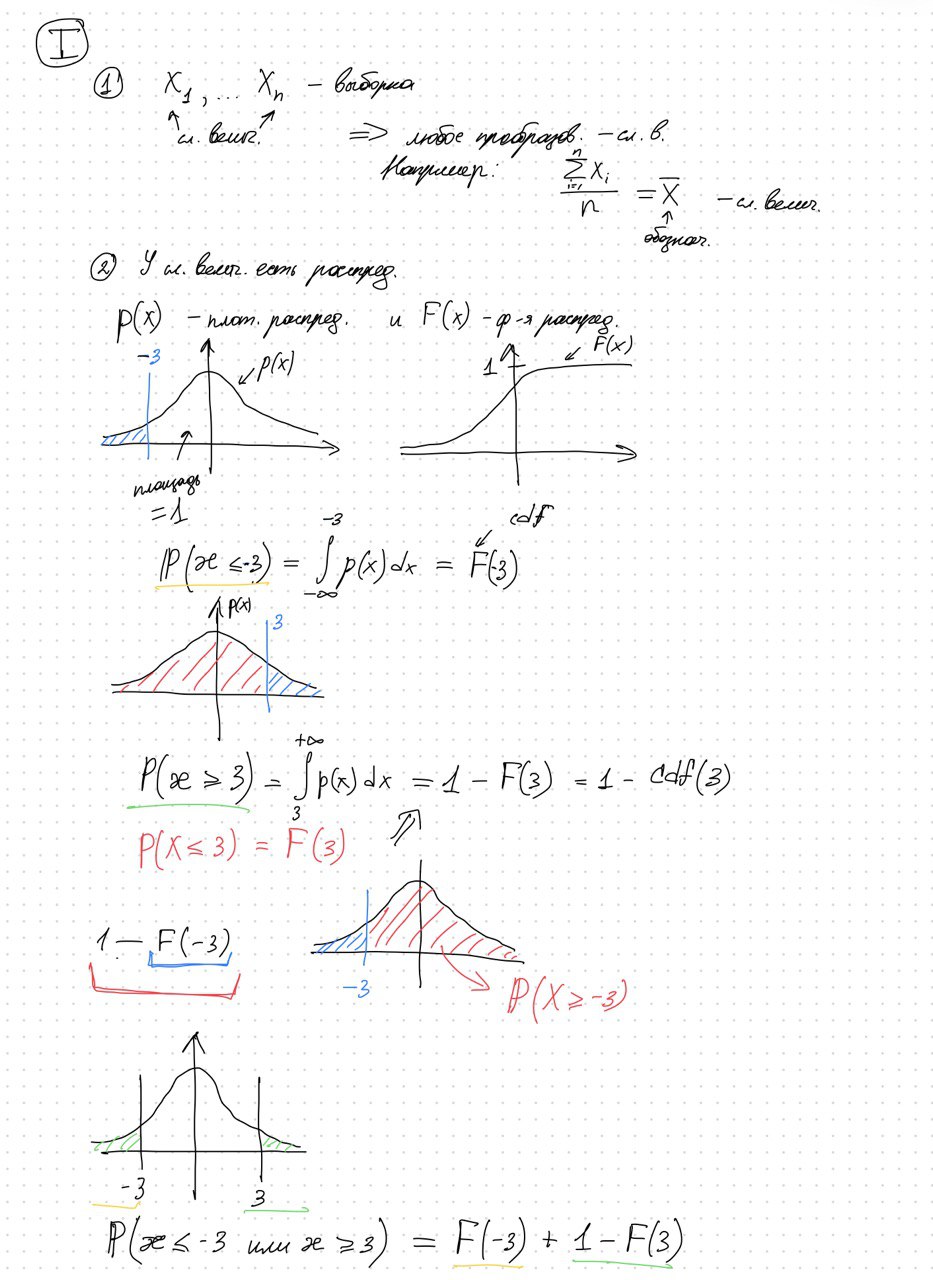 I
① X₁, ... Xₙ – выборка
сл. велич. ⇒ любое преобразов. – сл. в.
Например: ∑ᵢ₌₁ⁿ Xᵢ / n = X̄ – сл. велич.
обознач.
② У сл. велич. есть распред.
p(x) – плот. распред. и F(x) – ф-я распред.
-3 p(x) 1 F(x)
площадь
= 1
cdf
ℙ(x ≤ -3) = ∫₋∞⁻³ p(x) dx = F(-3)
p(x) 3
P(x ≥ 3) = ∫₃⁺∞ p(x) dx = 1 – F(3) = 1 – cdf(3)
P(X ≤ 3) = F(3)
1 – F(-3)
-3 ℙ(X ≥ -3)
-3 3
ℙ(x ≤ -3 или x ≥ 3) = F(-3) + 1 – F(3)